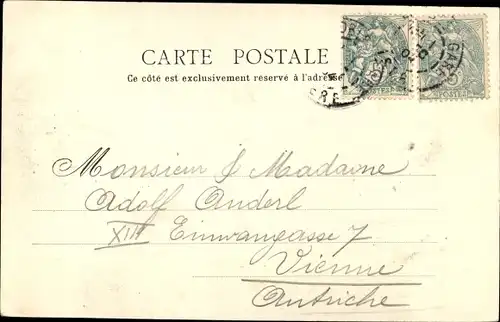 CARTE POSTALE
Ce côté est exclusivement réservé à l'adresse
POSTES
POSTES
Monsieur & Madame
Adolf Anderl
XIII Einwangasse 7
Vienne
Autriche